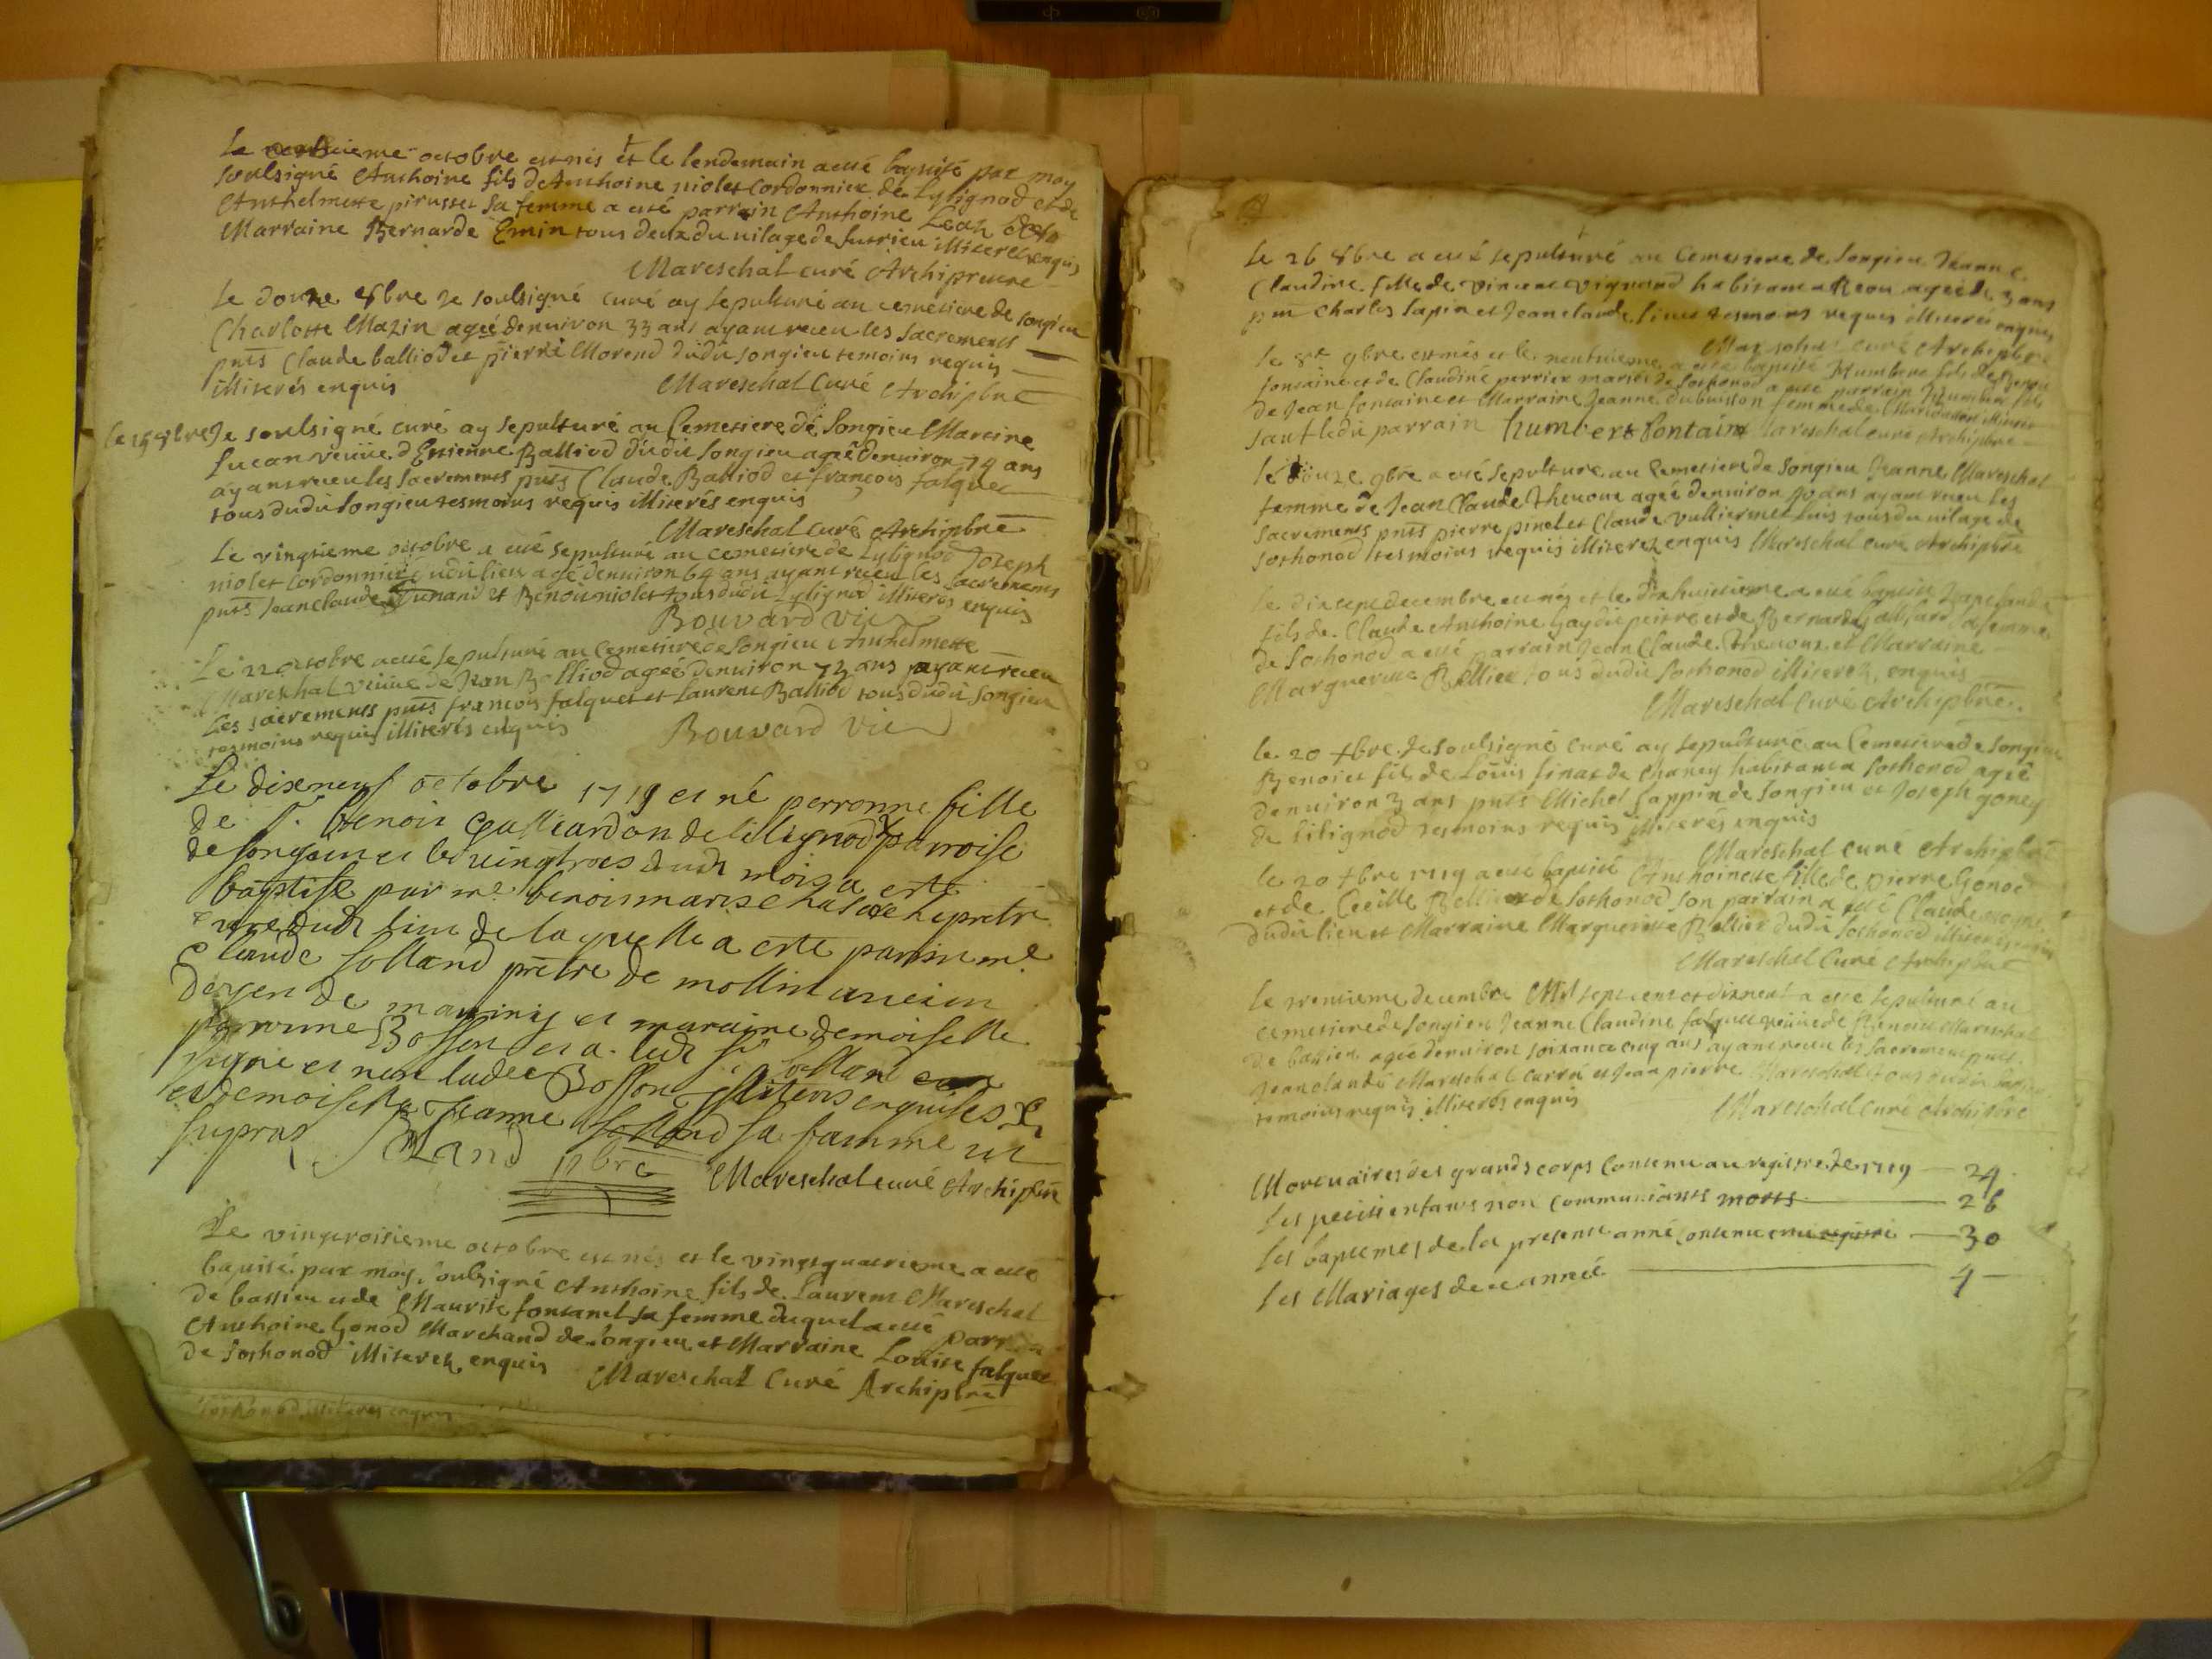 octobre est nés et le lendemain a eté baptisé par moy
soulsigné Anthoine fils de Anthoine niolet Cordonnier de Lylignod et de
Anthelmette pirusset sa femme a esté parrain Anthoine
Marraine Bernarde Emin tous deux du vilage de sutrieu illiterés enquis
Mareschal curé Archiprettre
Le douze 8bre Je soulsigné curé ay sepulturé au cemetiere de songieu
Charlotte Mazin ageé d'enuiron 33 ans ayant receu les sacrements
pnts Claude balliod et pierre Morend dudit songieu temoins requis
illiterés enquis Mareschal Curé Archiplre
Le 15 8bre Je soulsigné curé ay sepulturé au Cemetiere de songieu Martine
Lucan veüve d'Estienne Balliod dudit songieu ageé d'enuiron 74 ans
ayant receu les sacrements pnts Claude Balliod et françois falquet
tous dudit songieu tesmoins requis illiterés enquis
Mareschal curé Archipbre
Le vingtieme octobre a eté sepulturé au cemetiere de Lylignod Joseph
niolet Cordonnier dudit lieu agé d'enuiron 64 ans ayant receu les sacrements
pnts Jean claude Junand et Benoit niolet tous dudit Lylignod illiterés enquis
Bouvard vic
Le 22 octobre a eté sepulturé au Cemetiere de songieu Anthelmette
Mareschal veüve de Jean Balliod ageé d'enuiron 73 ans ayant receu
Les sacrements pnts francois falquet et Laurent Balliod tous dudit songieu
tesmoins requis illiterés enquis Bouvard vic
Le dixneuf octobre 1719 et né perronne fille
de Sr benoit Gulliardon de lilignod parroise
de songieu et le vingtrois dudit mois a esté
baptise par mre benoit mareschal archipretre
curé dudit lieu de laquelle a esté parrin mre
Claude solland prêtre de mollin ancien
doyen de et maraine demoiselle
perronne Bosson et a ledit sr solland
signe et non ladte Bosson illiteris enquises
et demoiselle Jeanne solland sa famme ut
supras Solland pbre
Mareschal curé Archiplre
Le vingtroisieme octobre est nés et le vingtquatrieme a eté
baptisé par moy soulsigné Anthoine fils de Laurent Mareschal
de bassieu et de Maurise fontanel sa femme duquel a eté parrain
Anthoine Gonod Marchand de songieu et Marraine Louise falquet
de sothonod illiterez enquis Mareschal Curé Archiplre
sothonod illiterés enquis
Le 26 8bre a eté sepulturé au Cemetiere de songieu Jeanne
Claudine fille de vincent vignand habitant a ageé de 3 ans
pnt Charles sapin et Jean claude tesmoins requis illiterés enquis
Mareschal curé Archiplre
Le 8e 9bre est nés et le neufuieme a eté baptisé Humbert fils de Benoit
fontaine et de Claudine perrier mariés de sothonod a eté parrain Humbert fils
de Jean fontaine et Marraine Jeanne dubuisson femme de
sauf ledit parrain humbert fontaine Mareschal curé Archiplre
Le douze 9bre a eté sepulturé au Cemetiere de songieu Jeanne Mareschal
femme de Jean Claude Thevout ageé d'enuiron 70 ans ayant receu les
sacrements pnts pierre pinel et Claude vulliermet tous du vilage de
sothonod tesmoins requis illiterez enquis Mareschal curé Archiplre
Le dixsept decembre est nés et le dixhuictieme a eté baptisé Jean claude
fils de Claude Anthoine et de Bernarde sa femme
de sothonod a eté parrain Jean Claude Thevout et Marraine
Marguerite Bellier tous dudit sothonod illiterez enquis
Mareschal Curé Archiplre
le 20 xbre Je soulsigné curé ay sepulturé au Cemetiere de songieu
Benoit fils de Louis sinat de Chaney habitant a sothonod agé
d'enuiron 3 ans pnts Michel sappin de songieu et Joseph goney
de lilignod tesmoins requis illiterés enquis
Mareschal curé Archiplre
le 20 xbre 1719 a eté baptisé Anthoinette fille de pierre Gonod
et de Cecille Bellier de sothonod son parrain a eté Claude
dudit lieu et Marraine Marguerite Bellier dudit sothonod illiterés enquis
Mareschal Curé Archiplre
Le trentieme decembre Mil sept cent et dixneuf a eté sepulturé au
cemetiere de songieu Jeanne Claudine falquet veüve de Benoit Mareschal
de bassieu ageé d'enuiron soixante cinq ans ayant receu les sacrements pnts
Jean claude Mareschal curré et Jean pierre Mareschal tous dudit bassieu
temoins requis illiterés enquis Mareschal curé Archiplre
Mortuaires des grands corps Contenu au registre de 1719 24
Les petits enfants non communiants morts 26
Les baptemes de la presente anné contenu 30
Les Mariages de ce année 4